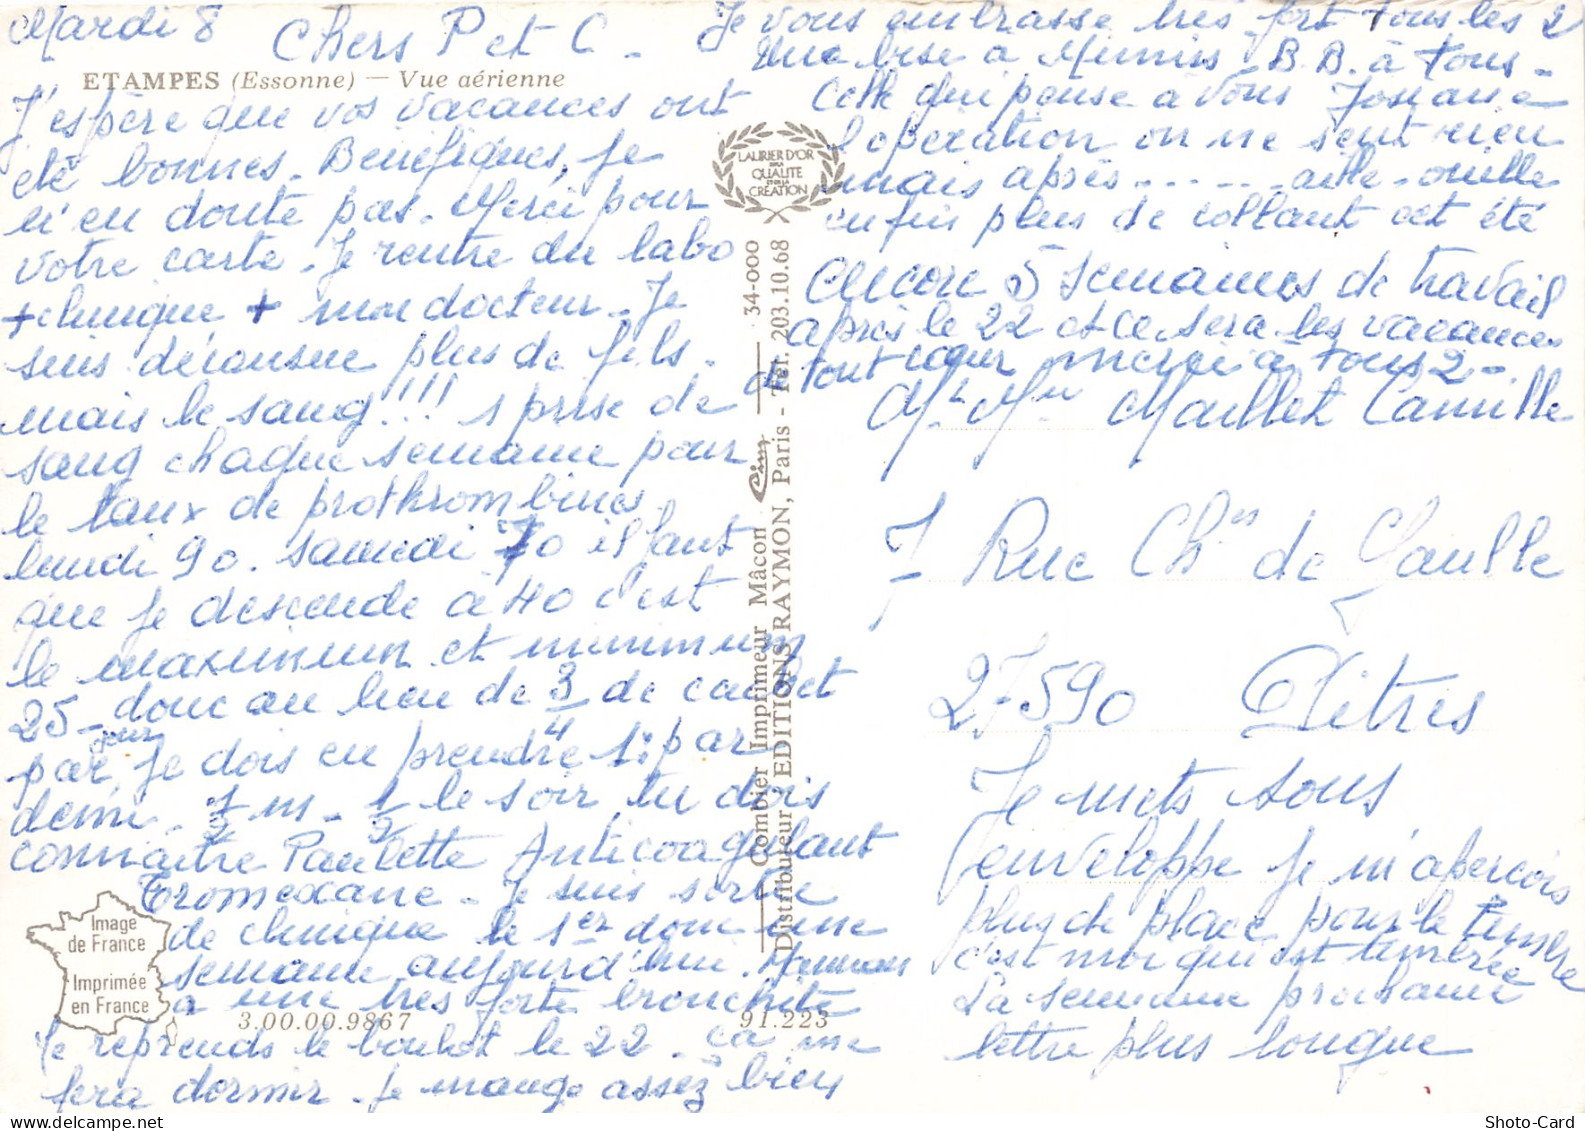 Mardi 8 Chers P et C -
ETAMPES (Essonne) — Vue aérienne
J'espère que vos vacances ont
été bonnes. Bénéfiques, je
n'en doute pas. Merci pour
votre carte. Je rentre du labo
+ clinique + mon docteur. Je
suis décousue plus de fils.
mais le sang!!! 1 prise de
sang chaque semaine pour
le taux de prothrombines
lundi 90. samedi 70 il faut
que je descende à 40 c'est
le maximum et minimum
25 - donc au lieu de 3/4 de cachet
par jour je dois en prendre 1 par
demi. 1/2 m. 1/2 le soir tu dois
connaître Paulette Anticoagulant
Tromexane. Je suis sortie
de clinique le 1er donc une
semaine aujourd'hui. Maman
a une très forte bronchite
Je reprends le boulot le 22. ça me
fera dormir. Je mange assez bien
Image
de France
Imprimée
en France
3.00.00.9867
91.223
LAURIER D'OR
DE LA
QUALITÉ
ET DE LA
CRÉATION
Combier Imprimeur Mâcon Cim 34-000
Distributeur EDITIONS RAYMON, Paris - Tél. 203.10.68
Je vous embrasse très fort tous les 2
Une bise à B.B. à tous -
Celle qui pense à vous Josiane
l'opération on ne sent rien
mais après...... aille - ouille
enfin plus de collant cet été
Encore 5 semaines de travail
après le 22 et ce sera les vacances
de tout cœur merci à tous 2 -
Mr Mme Maillet Camille
7 Rue Ch les de Gaulle
27590 Pitres
Je mets sous
enveloppe je m'aperçois
plus de place pour le timbre
c'est moi qui est timbrée
La semaine prochaine
lettre plus longue
Shoto-Card